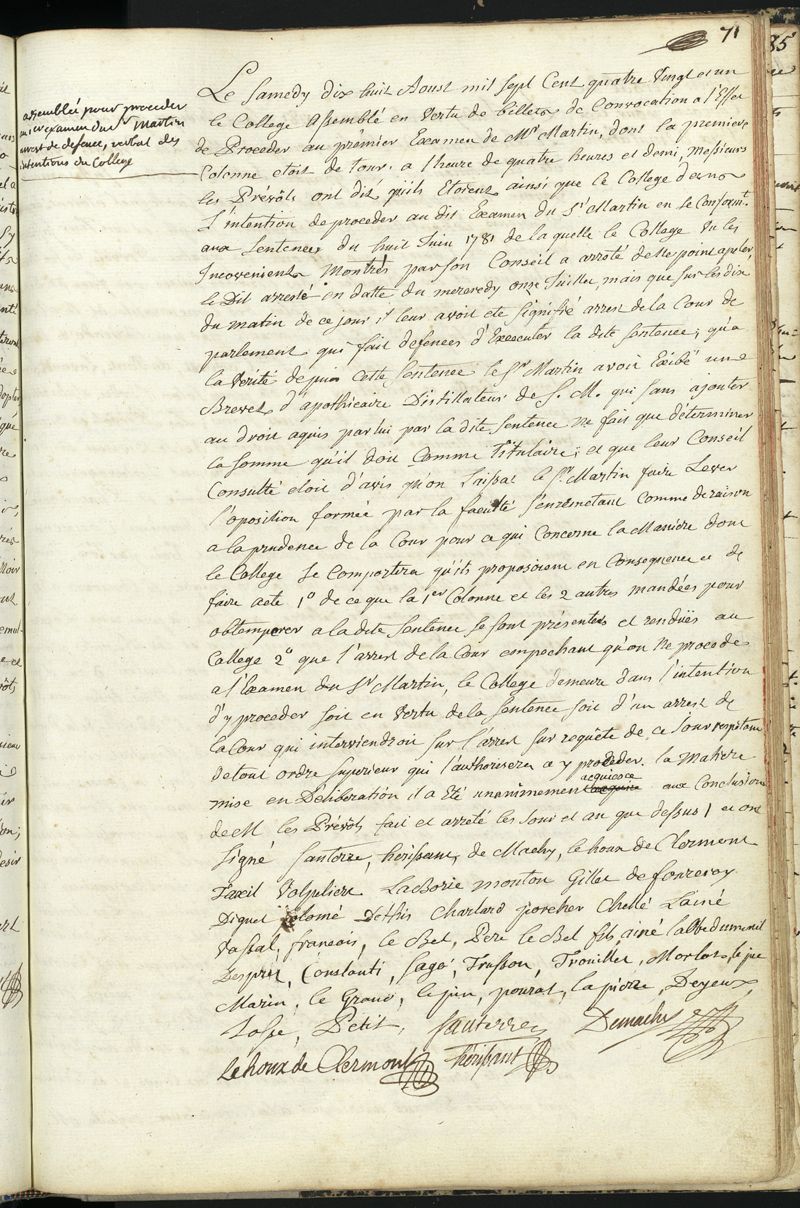 71
assemblée pour proceder
examen du Sr Martin
arrest de defence, verbal des
intentions du College
Le Samedy dix huit Aoust mil Sept Cent quatre Vingt et un
le College Assemblé en Vertu de billets de Convocation a l'Effet
de Proceder au prémier Examen de Mr. Martin, dont la premiere
Colonne etoit de tour. a l'heure de quatre heures et demi, Messieurs
les Prévôts ont dit quils Etoient ainsi que le College dans
l'intention de proceder au dit Examen du Sr Martin en se Conformt.
aux Sentences du huit Juin 1781 de laquelle le College Vu les
Inconvenients Montrés par son Conseil a arrété de ne point apeler,
le Dit arresté en datte du mercredy onze Juillet, mais que sur les dix
du matin de ce jour il leur avoit eté signifié arrest de la Cour de
parlement qui fait defences d'Executer la dite Sentence; qu'a
la Verité depuis cette Sentence le Sr Martin avoit Exibé un
Brevet d'apothicaire Distillateur de S. M. qui sans ajouter
au droit aquis par lui par la dite Sentence ne fait que déterminer
la somme qu'il doit Comme Titulaire; et que leur Conseil
Consulté etoit d'avis qu'on laissat le Sr. Martin faire Lever
l'oposition formée par la faculté s'enremetant comme de raison
a la prudence de la Cour pour ce qui Concerne la Maniere dont
le College se Comportera qu'ils proposoient en Consequence de
faire acte 1º de ce que la 1er Colonne et les 2 autres mandées pour
obtemperer a la dite Sentence se sont présentés et renduës au
College 2º que l'arrest de la Cour empechant qu'on ne procede
a l'Examen du Sr Martin, le College demeure dans l'intention
d'y proceder soit en Vertu de la Sentence soit d'un arrest de
la Cour qui interviendroit sur l'arrest sur requête de ce jour
de tout ordre Superieur qui l'authorisera a y proceder. la Matiere
mise en Deliberation il a Eté unanimement acquiescé aux Conclusions
de M les Prévôts fait et arreté les jour et an que dessus / et ont
Signé Santerre, herissant, de Machy, le houx de Clermont
Taxil Valpuliere Laborie mouton Gillet de fourcroy
Diquet Dessis Charlard porcher Chellé Lainé
Vassal, francois, le Bel, Pere le Bel fils ainé
Despret, Constanti, Sage, Trusson, Trouillet, Morlot, le jne
Marin, le Grand, le jeu, pourat, la pierre, Deyeux,
Josse, Petit, Santerre Demachy
Le houx de Clermont herissant